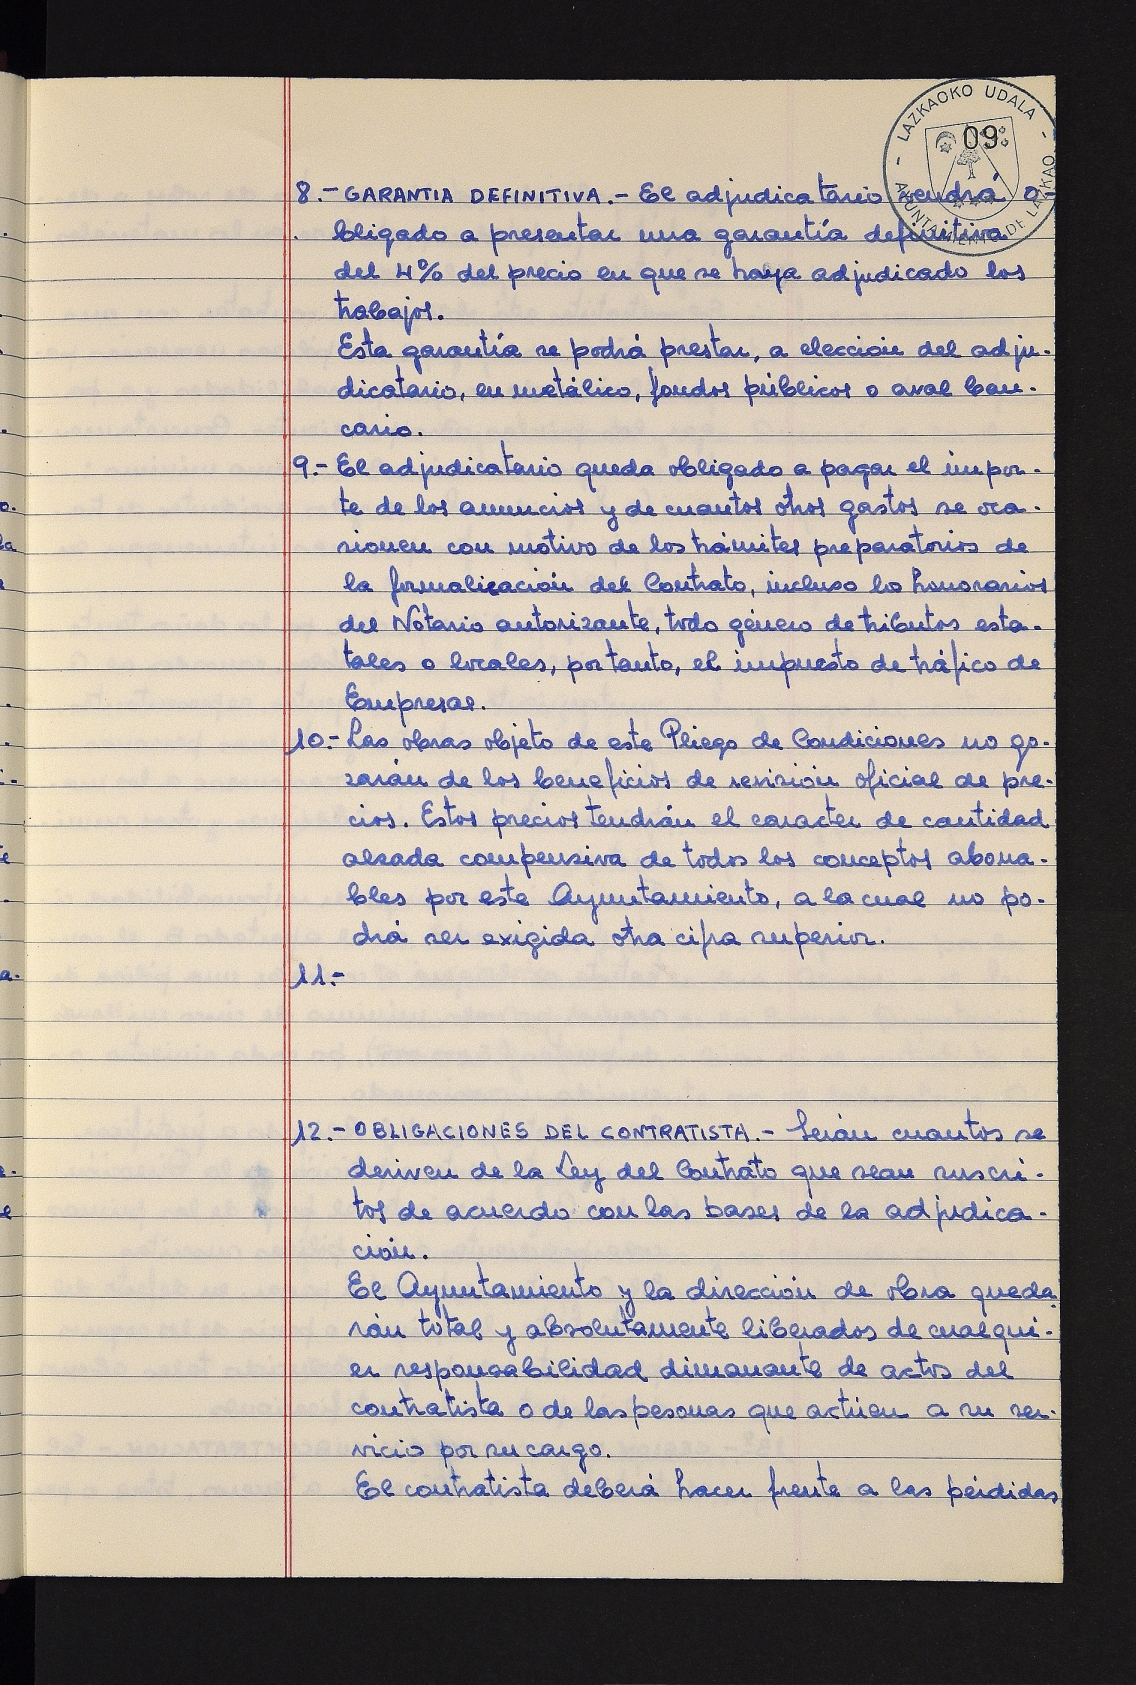 - LAZKAOKO UDALA -
AYUNTAMIENTO DE LAZKAO
09
8.- GARANTIA DEFINITIVA.- El adjudicatario vendrá o-
bligado a presentar una garantía definitiva
del 4% del precio en que se haya adjudicado los
trabajos.
Esta garantía se podrá prestar, a elección del adju-
dicatario, en metálico, fondos públicos o aval ban-
cario.
9.- El adjudicatario queda obligado a pagar el impor-
te de los anuncios y de cuantos otros gastos se oca-
sionen con motivo de los trámites preparatorios de
la formalización del Contrato, incluso lo honorarios
del Notario autorizante, todo género de tributos esta-
tales o locales, por tanto, el impuesto de tráfico de
Empresas.
10.- Las obras objeto de este Pliego de Condiciones no go-
zarán de los beneficios de revisión oficial de pre-
cios. Estos precios tendrán el caracter de cantidad
alzada compensiva de todos los conceptos abona-
bles por este Ayuntamiento, a la cual no po-
drá ser exigida otra cifra superior.
11.-
12.- OBLIGACIONES DEL CONTRATISTA.- Serán cuantos se
deriven de la Ley del Contrato que sean suscri-
tos de acuerdo con las bases de la adjudica-
ción.
El Ayuntamiento y la dirección de obra queda-
rán total y absolutamente liberados de cualqui-
er responsabilidad dimanante de actos del
contratista o de las pesonas que actúen a su ser-
vicio por su cargo.
El contratista deberá hacer frente a las pérdidas